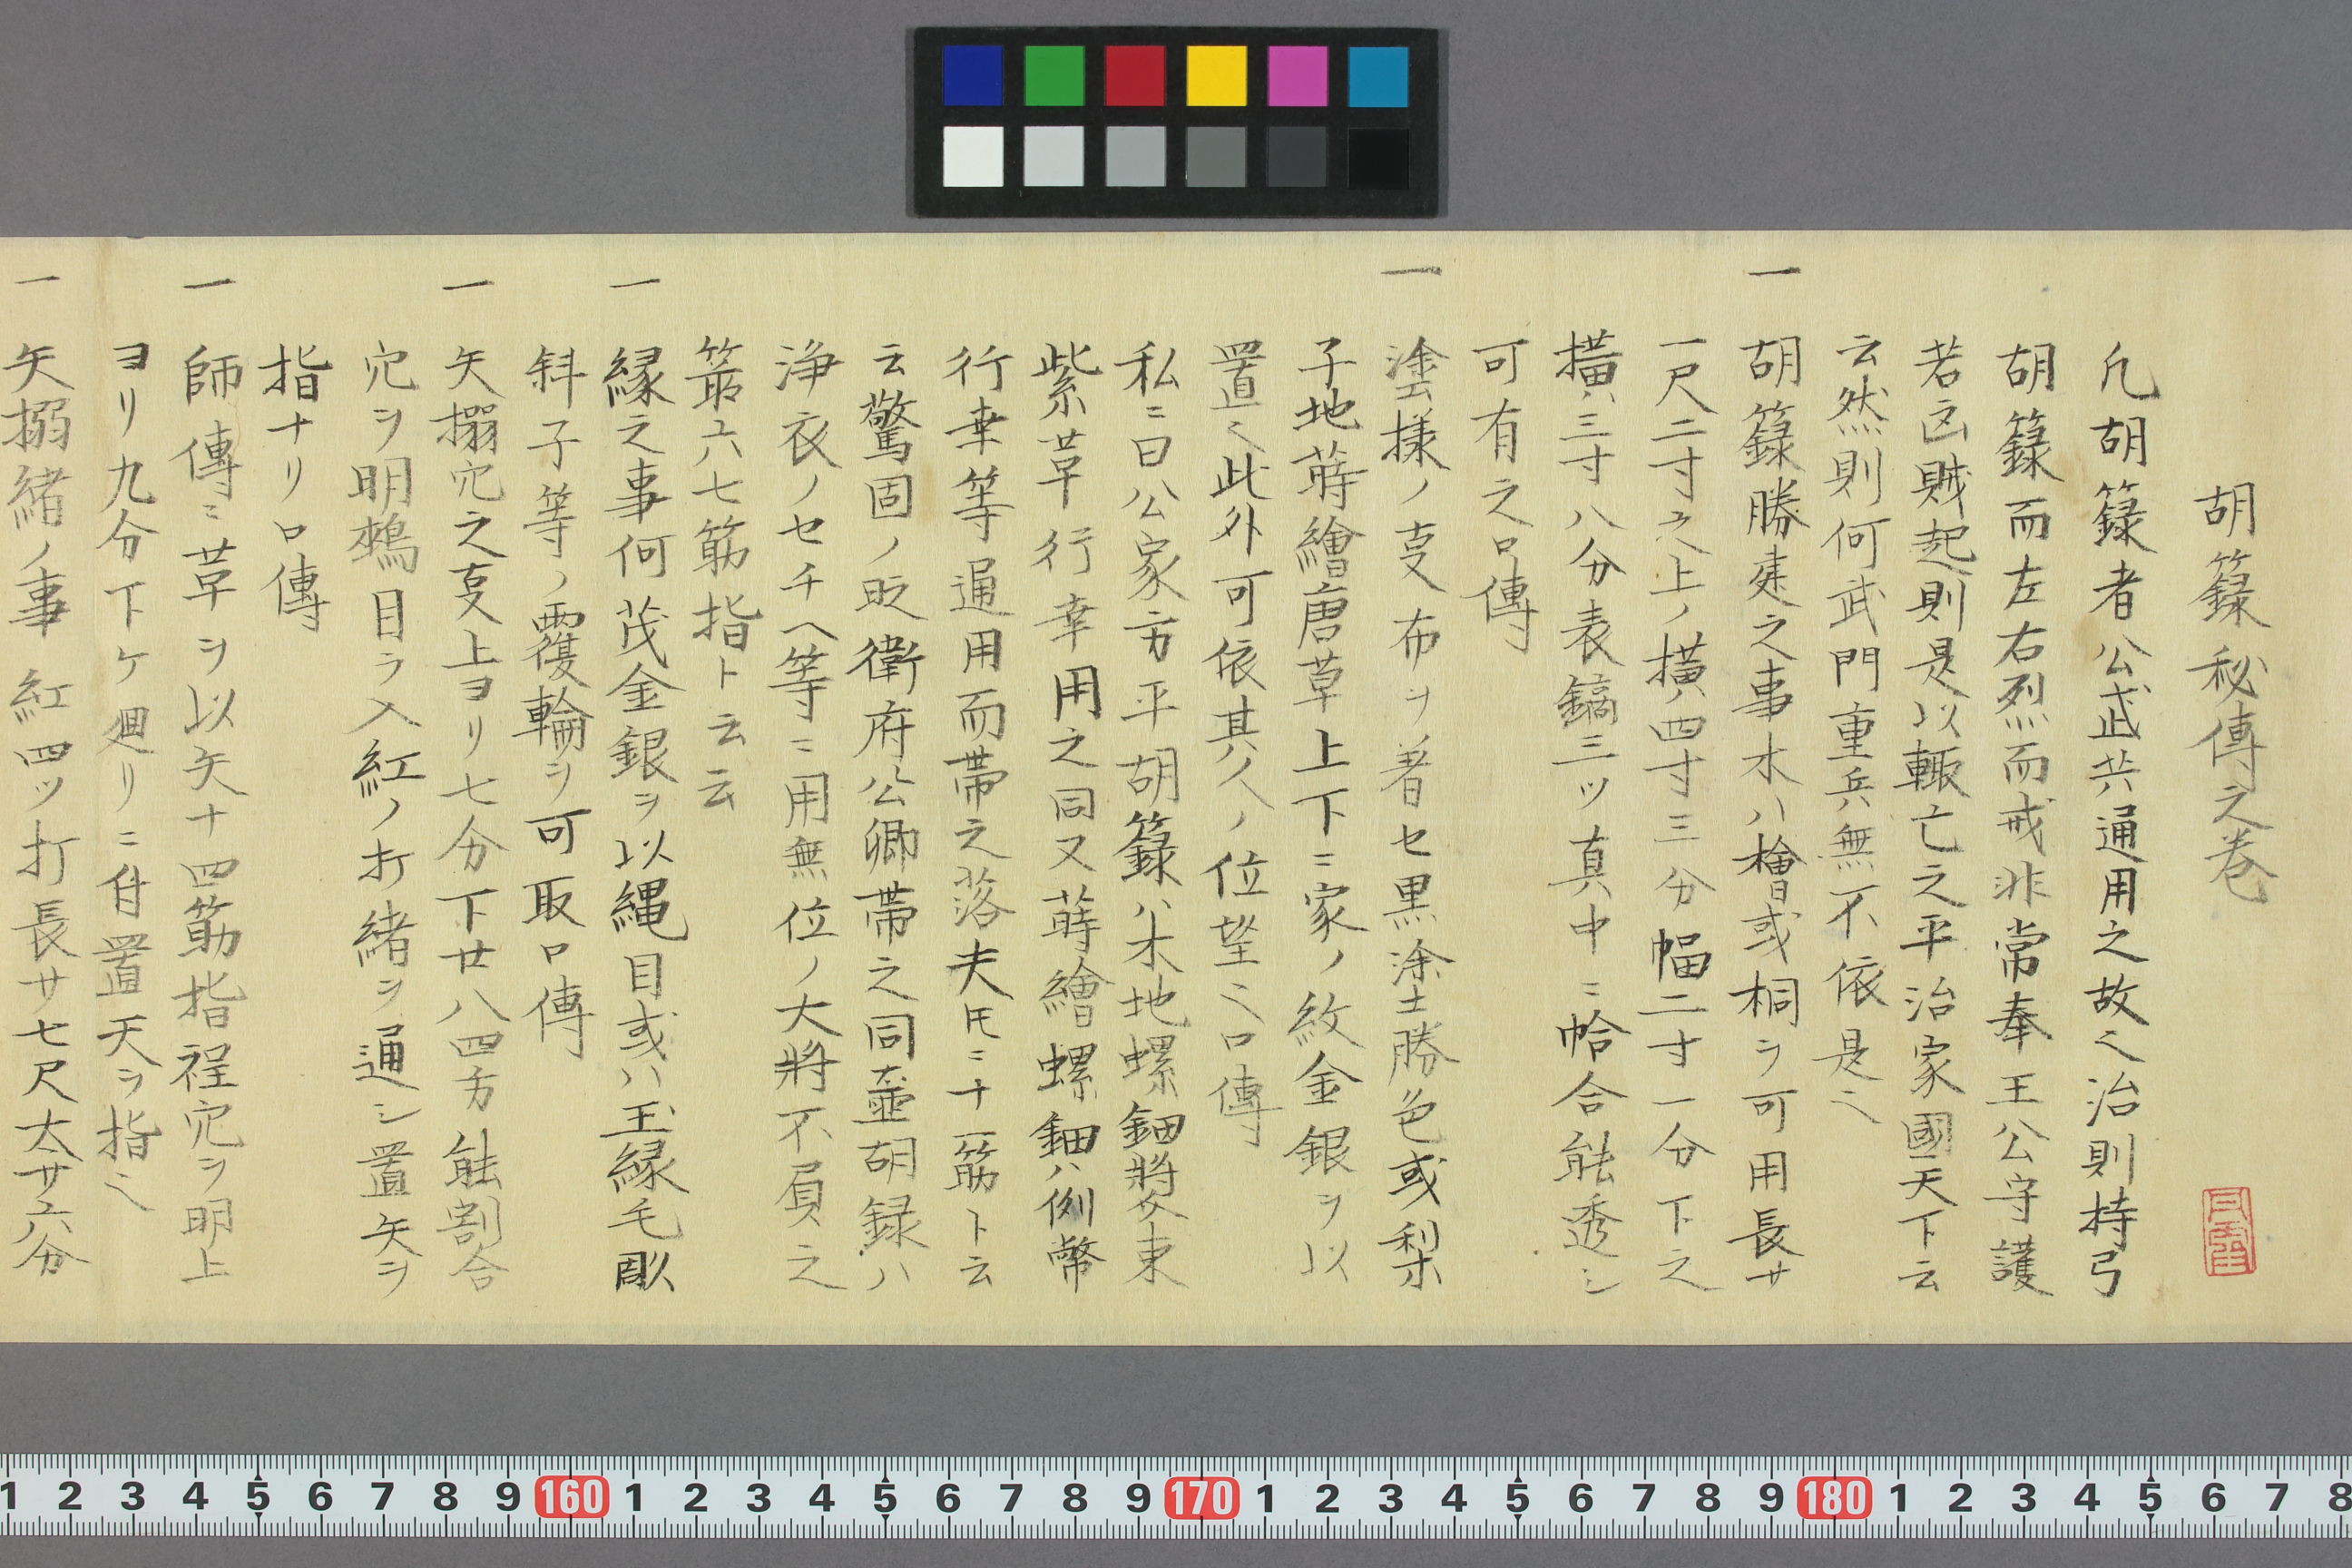 胡籙秘傳之巻
凡胡籙者公武共通用之故〻治則持弓
胡籙而左右烈而戒非常奉王公守護
若凶賊起則是以輙亡之平治家國天下云
云然則何武門重兵無不依是〻
一 胡籙勝建之事木ハ檜或桐ヲ可用長サ
一尺二寸之上ノ横ハ四寸三分幅二寸一分下之
横ハ三寸八分表鎬三ツ真中ニ恰合能透シ
可有之口傳
一 塗様ノ叓布ヲ著セ黒涂土勝色或梨
子地蒔繪唐草上下ニ家ノ紋金銀ヲ以
置〻此外可依其人ノ位望〻口傳
私ニ曰公家方平胡籙ハ木地螺鈿將焚東
紫草行幸用之同又蒔繪螺鈿ハ例幣
行幸等通用而帯之落夫ㇳモニ十一筋ト云
云驚固ノ時衛府公卿帯之同壷胡録ハ
浄衣ノセチヘ等ニ用無位ノ大將不屓之
箭六七筋指ト云云
一 縁之事何茂金銀ヲ以縄目或ハ玉縁毛彫
斜子等ノ覆輪ヲ可取口傳
一 矢搦穴之叓上ヨリ七分下廿八四方能割合
穴ヲ明鵐目ヲ入紅ノ打緒ヲ通シ置矢ヲ
指ナリ口傳
一 師傳ニ草ヲ以矢十四筋指程穴ヲ明上
ヨリ九分下ケ廻リニ付置天ヲ指〻
一 矢搦緒ノ事 紅四ツ打長サ七尺太サ六分
1 2 3 4 5 6 7 8 9 160 1 2 3 4 5 6 7 8 9 170 1 2 3 4 5 6 7 8 9 180 1 2 3 4 5 6 7 8